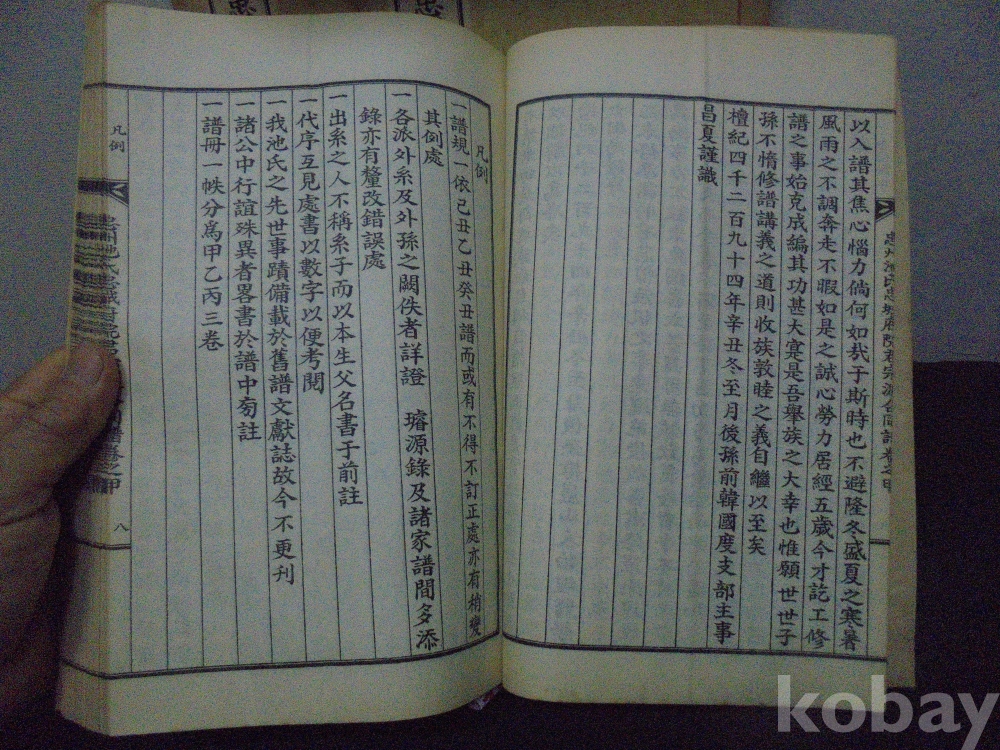 以入譜其焦心惱力倘何如哉于斯時也不避隆冬盛夏之寒暑
風雨之不調奔走不暇如是之誠心勞力居經五歲今才訖工修
譜之事始克成編其功甚大寔是吾擧族之大幸也惟願世世子
孫不惰修譜講義之道則收族敦睦之義自繼以至矣
檀紀四千二百九十四年辛丑冬至月後孫前韓國度支部主事
昌夏謹識
凡例
一譜規一依己丑乙丑癸丑譜而或有不得不訂正處亦有稍變
其例處
一各派外系及外孫之闕佚者詳證 璿源錄及諸家譜間多添
錄亦有釐改錯誤處
一出系之人不稱系子而以本生父名書于前註
一代序互見處書以數字以便考閱
一我池氏之先世事蹟備載於舊譜文獻誌故今不更刊
一諸公中行誼殊異者畧書於譜中旁註
一譜冊一帙分爲甲乙丙三卷
凡例
八
kobay